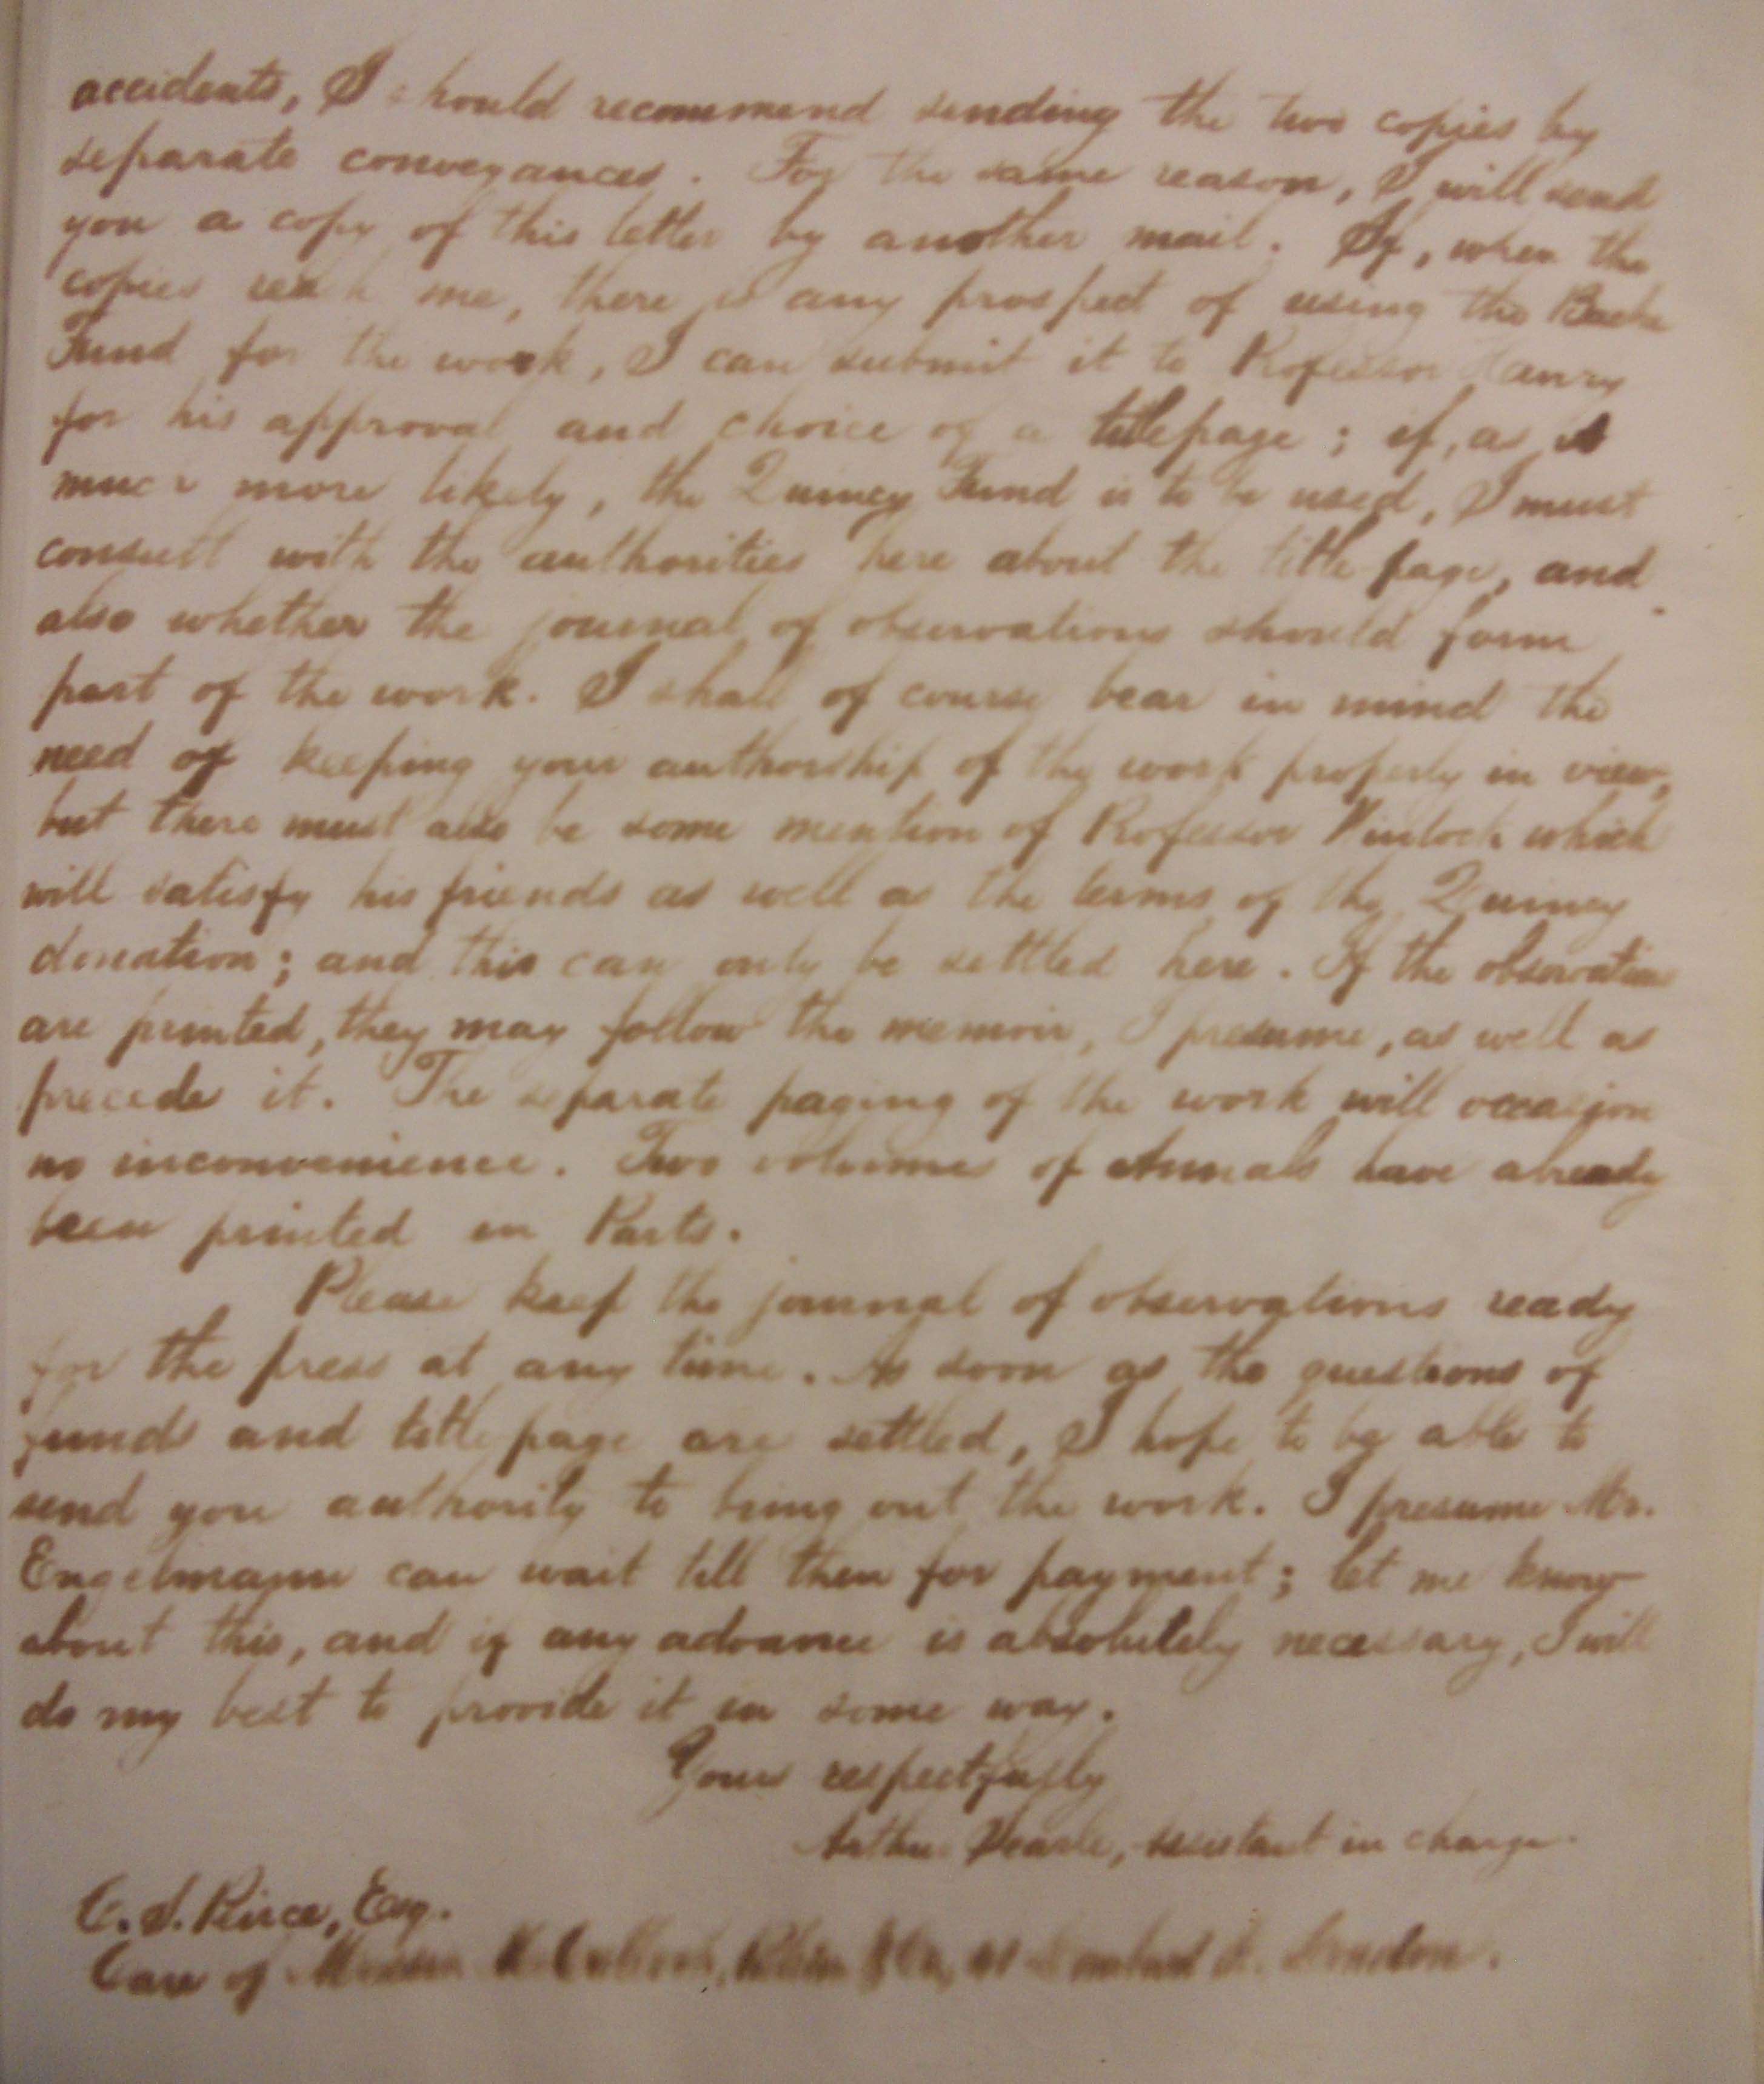 accidents, I should recommend sending the two copies by
separate conveyances. For the same reason, I will send
you a copy of this letter by another mail. If, when the
copies reach me, there is any prospect of using the Bache
Fund for the work, I can submit it to Professor Henry
for his approval and choice of a titlepage; if, as is
much more likely, the Quincy Fund is to be used, I must
consult with the authorities here about the title page, and
also whether the journal of observations should form
part of the work. I shall of course bear in mind the
need of keeping your authorship of the work properly in view,
but there must also be some mention of Professor Winlock which
will satisfy his friends as well as the terms of the Quincy
donation; and this can only be settled here. If the observations
are printed, they may follow the memoir, I presume, as well as
precede it. The separate paging of the work will occasion
no inconvenience. Two volumes of Annals have already
been printed in Parts.
Please keep the journal of observations ready
for the press at any time. As soon as the questions of
funds and title page are settled, I hope to be able to
send you authority to bring out the work. I presume Mr.
Engelmann can wait till then for payment; let me know
about this, and if any advance is absolutely necessary, I will
do my best to provide it in some way.
Yours respectfully
Arthur Searle, assistant in charge.
C. S. Peirce, Esq.
Care of Messrs McCulloch, & Co, 41 Lombard St. London.